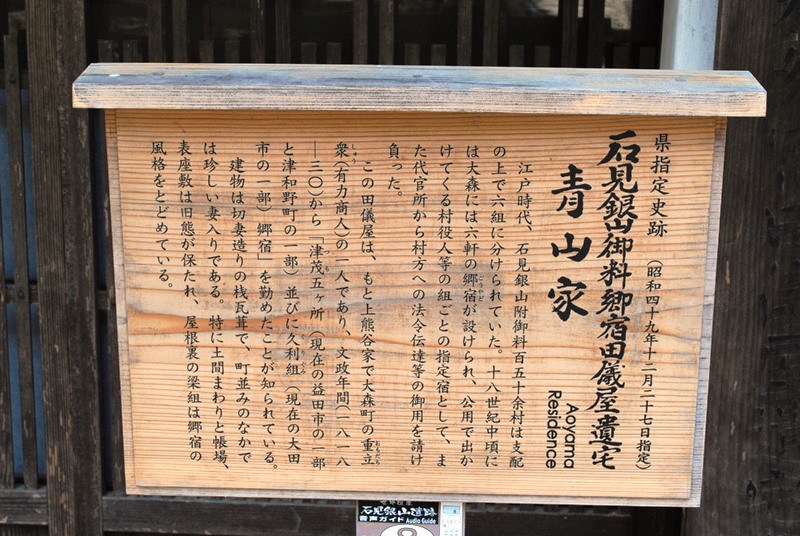 県指定史跡 (昭和四十九年十二月二十七日指定)
石見銀山御料郷宿田儀屋遺宅
青山家
Aoyama
Residence
江戸時代、石見銀山附御料百五十余村は支配
の上で六組に分けられていた。十八世紀中頃に
は大森には六軒の郷宿が設けられ、公用で出か
けてくる村役人等の組ごとの指定宿として、ま
た代官所から村方への法令伝達等の御用を請け
負った。
この田儀屋は、もと上熊谷家で大森町の重立
衆(有力商人)の一人であり、文政年間(一八一八
―三〇)から「津茂五ヶ所(現在の益田市の一部
と津和野町の一部)並びに久利組(現在の大田
市の一部)郷宿」を勤めたことが知られている。
建物は切妻造りの桟瓦葺で、町並みのなかで
は珍しい妻入りである。特に土間まわりと帳場、
表座敷は旧態が保たれ、屋根裏の梁組は郷宿の
風格をとどめている。
世界遺産
石見銀山遺跡
音声ガイド Audio Guide